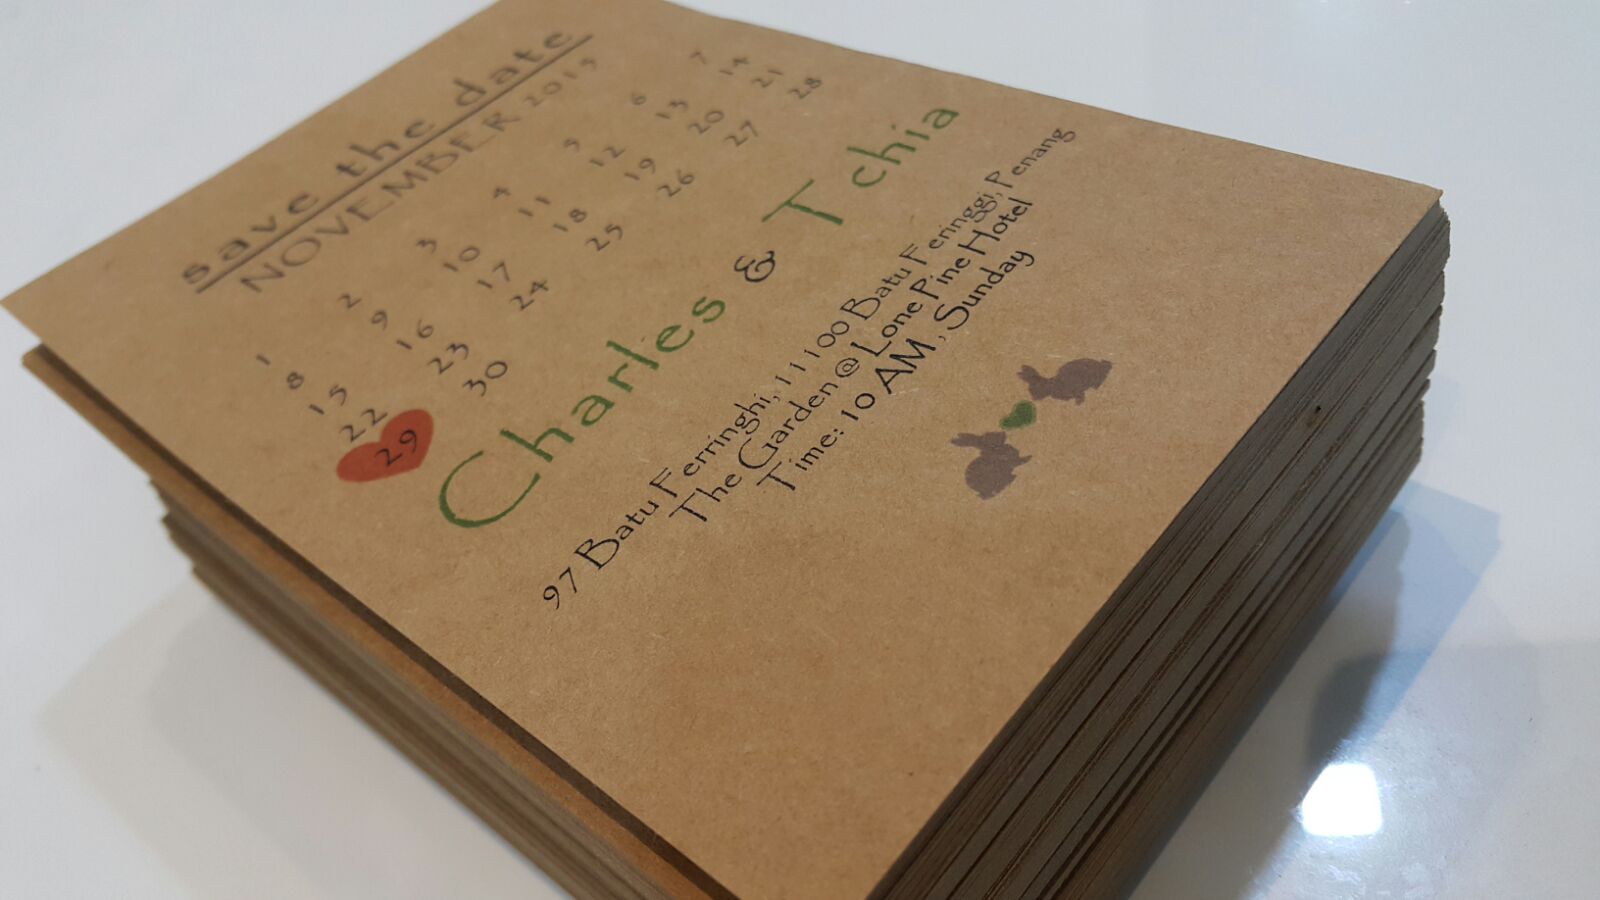 save the date
NOVEMBER 2015
1 2 3 4 5 6 7
8 9 10 11 12 13 14
15 16 17 18 19 20 21
22 23 24 25 26 27 28
29 30
Charles & Tchia
97 Batu Ferringhi, 11100 Batu Feringgi, Penang
The Garden @ Lone Pine Hotel
Time: 10 AM, Sunday